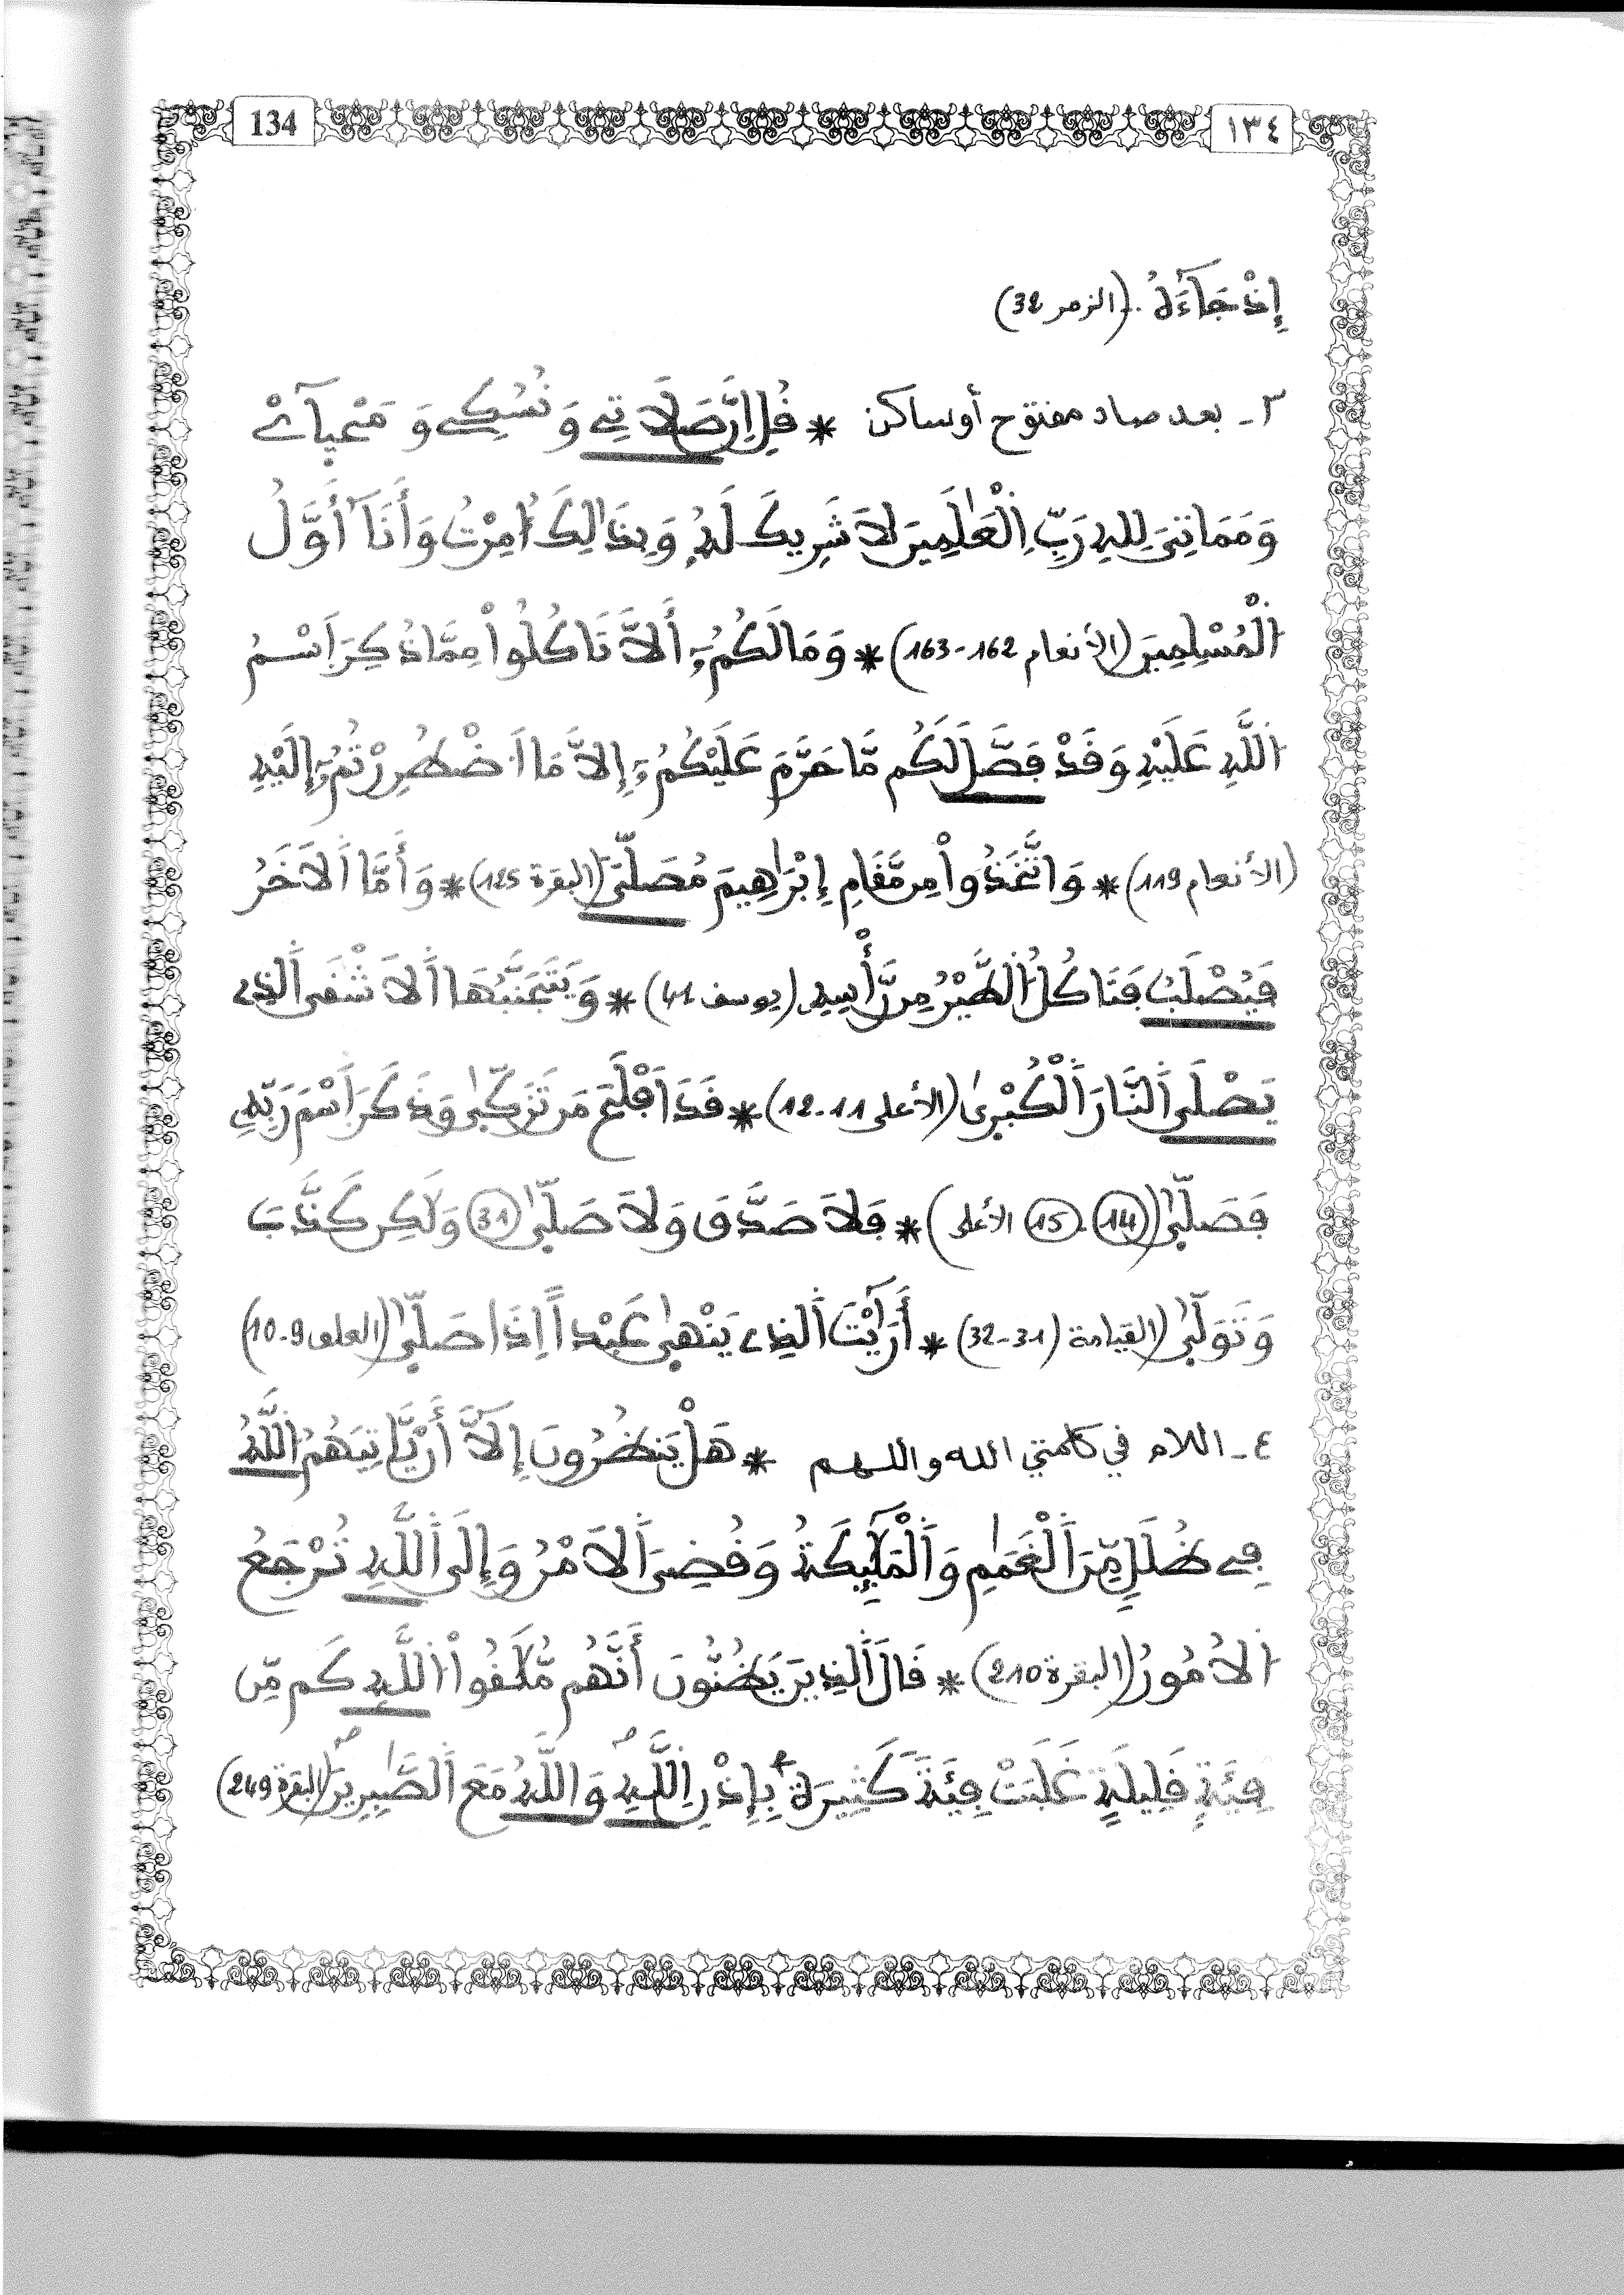 134 ١٣٤
إِذْ جَآءَهُۥ .. (الزمر 32)
٣ - بعد صاد مفتوح أو ساكن * قُلِ اِنَّ صَلَاتِے وَنُسُكِے وَمَحْيآےْ
وَمَمَاتِيَ لِلهِ رَبِّ اِ۬لْعَٰلَمِينَ لَا شَرِيكَ لَهُۥ وَبِذَٰلِكَ أُمِرْتُ وَأَنَآ أَوَّلُ
اُ۬لْمُسْلِمِينَ (الأنعام 162-163) * وَمَا لَكُمُۥٓ أَلَّا تَاكُلُواْ مِمَّا ذُكِرَ اَ۪سْمُ
اُ۬للَّهِ عَلَيْهِ وَقَدْ فَصَّلَ لَكُم مَّا حَرَّمَ عَلَيْكُمُۥٓ إِلَّا مَا اَ۟ضْطُرِرْتُمُۥٓ إِلَيْهِ
(الأنعام 119) * وَاتَّخَذُواْ مِن مَّقَامِ إِبْرَٰهِيمَ مُصَلّيٗ (البقرة 125) * وَأَمَّا اَ۬لَاخَرُ
فَيُصْلَبُ فَتَاكُلُ اُ۬لطَّيْرُ مِن رَّأْسِهِ (يوسف 41) * وَيَتَجَنَّبُهَا اَ۬لَاشْقَى اَ۬لذِے
يَصْلَى اَ۬لنَّارَ اَ۬لْكُبْرىٰ (الأعلى 11-12) * قَدَ اَفْلَحَ مَن تَزَكّىٰ وَذَكَرَ اَ۪سْمَ رَبِّهِۦ
فَصَلّىٰ (14 . 15 الأعلى) * فَلَا صَدَّقَ وَلَا صَلّىٰ 31 وَلَٰكِن كَذَّبَ
وَتَوَلّىٰ (القيامة (31-32) * أَرَٰٓيْتَ اَ۬لذِے يَنْهىٰ عَبْداً اِذَا صَلّىٰ (العلق 9-10)
٤ - اللام في كلمتي الله واللهم * هَلْ يَنظُرُونَ إِلَّآ أَنْ يَّاتِيَهُمُ اُ۬للَّهُ
فِے ظُلَلٍ مِّنَ اَ۬لْغَمَٰمِ وَالْمَلَٰٓئِكَةُ وَقُضِيَ اَ۬لَامْرُ وَإِلَى اَ۬للَّهِ تُرْجَعُ
اُ۬لُامُورُ (البقرة 210) * قَالَ اَ۬لذِينَ يَظُنُّونَ أَنَّهُم مُّلَٰقُواْ اُ۬للَّهِ كَم مِّن
فِئَةٖ قَلِيلَةٍ غَلَبَتْ فِئَةٗ كَثِيرَةَۢ بِإِذْنِ اِ۬للَّهِ وَاللَّهُ مَعَ اَ۬لصَّٰبِرِينَ (البقرة 249)